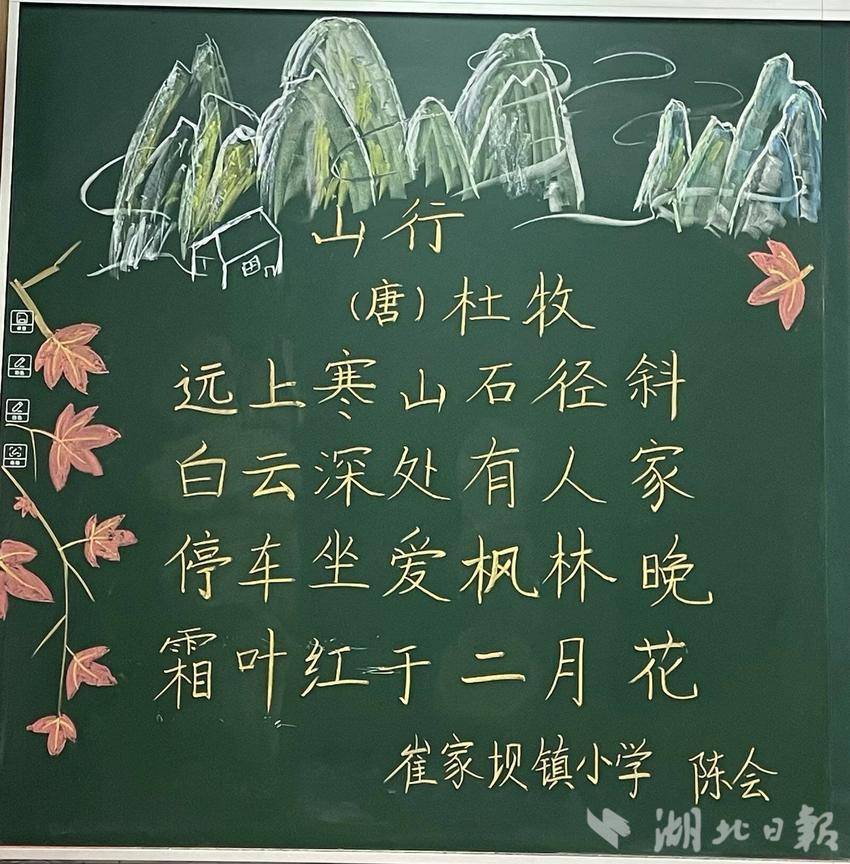 山行
（唐）杜牧
远上寒山石径斜
白云深处有人家
停车坐爱枫林晚
霜叶红于二月花
崔家坝镇小学 陈会
湖北日报